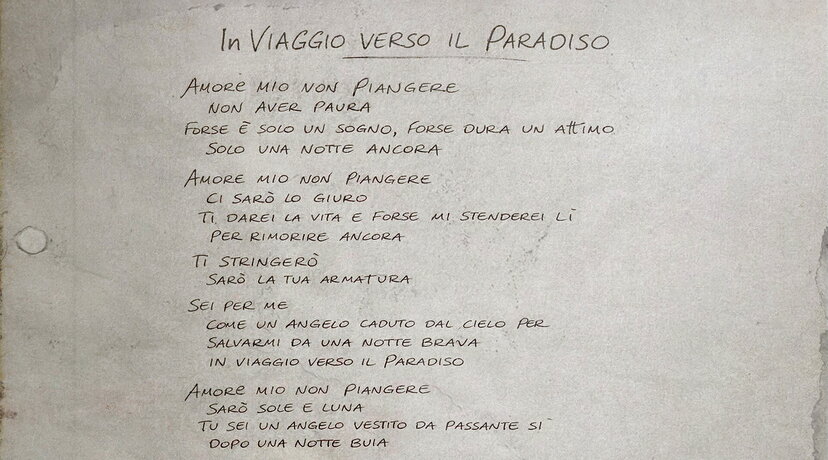 In VIAGGIO VERSO IL PARADISO
AMORE MIO NON PIANGERE
NON AVER PAURA
FORSE È SOLO UN SOGNO, FORSE DURA UN ATTIMO
SOLO UNA NOTTE ANCORA
AMORE MIO NON PIANGERE
CI SARÒ LO GIURO
TI DAREI LA VITA E FORSE MI STENDEREI LÌ
PER RIMORIRE ANCORA
TI STRINGERÒ
SARÒ LA TUA ARMATURA
SEI PER ME
COME UN ANGELO CADUTO DAL CIELO PER
SALVARMI DA UNA NOTTE BRAVA
IN VIAGGIO VERSO IL PARADISO
AMORE MIO NON PIANGERE
SARÒ SOLE E LUNA
TU SEI UN ANGELO VESTITO DA PASSANTE SÌ
DOPO UNA NOTTE BUIA